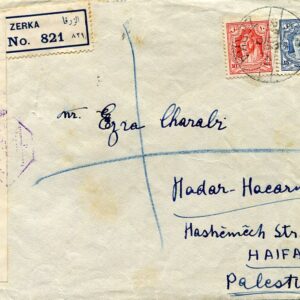 ZERKA الزرقا
No. 821 ٨٢١
Mr. Ezra Charabi
Hadar-Hacarm
Hashĕmĕch Str
HAIFA
Palest